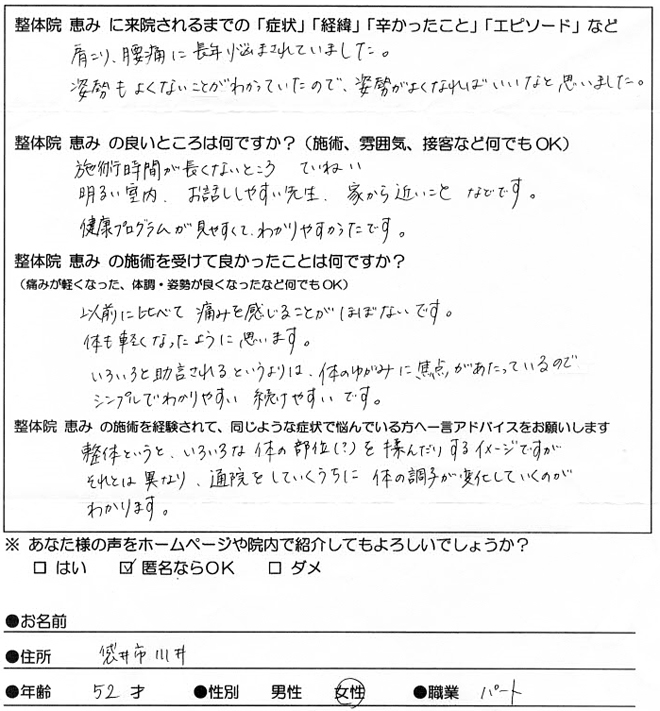 整体院 恵み に来院されるまでの「症状」「経緯」「辛かったこと」「エピソード」など
肩こり、腰痛に長年悩まされていました。
姿勢もよくないことがわかっていたので、姿勢がよくなればいいなと思いました。
整体院 恵み の良いところは何ですか?(施術、雰囲気、接客など何でもOK)
施術時間が長くないところ ていねい
明るい室内、お話ししやすい先生、家から近いこと などです。
健康プログラムが見やすくて、わかりやすかったです。
整体院 恵み の施術を受けて良かったことは何ですか?
(痛みが軽くなった、体調・姿勢が良くなったなど何でもOK)
以前に比べて痛みを感じることがほぼないです。
体も軽くなったように思います。
いろいろと助言されるというよりは、体のゆがみに焦点があたっているので
シンプルでわかりやすい 続けやすいです。
整体院 恵み の施術を経験されて、同じような症状で悩んでいる方へ一言アドバイスをお願いします
整体というと、いろいろな体の部位(?)を揉んだりするイメージですが
それとは異なり、通院をしていくうちに体の調子が変化していくのが
わかります。
※ あなた様の声をホームページや院内で紹介してもよろしいでしょうか?
□ はい ☑ 匿名ならOK □ ダメ
●お名前
●住所 袋井市川井
●年齢 52才 ●性別 男性 女性 ●職業 パート